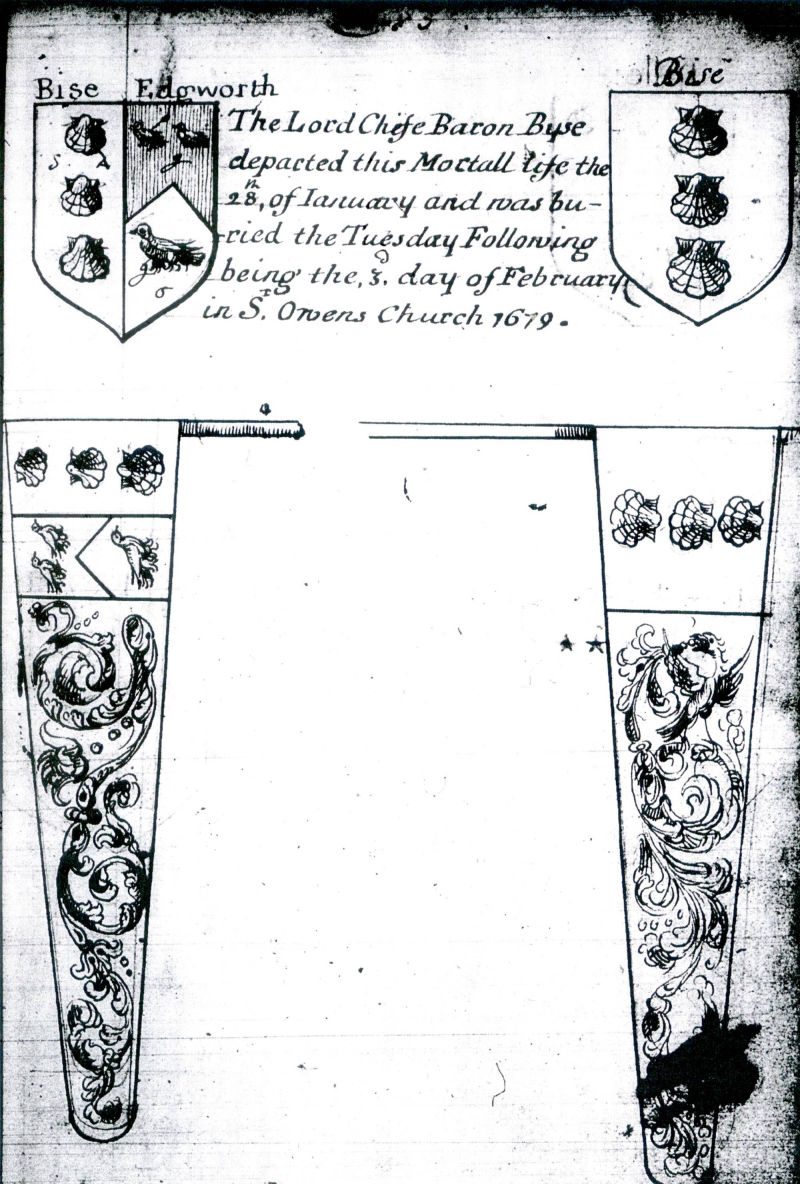 Bise Edgworth
Bise
S A
g
g
o
The Lord Chife Baron Byse
departed this Mortall life the
28th, of Ianuary and was bu-
ried the Tuesday Following
being the, 3d. day of February
in St. Owens Church 1679.